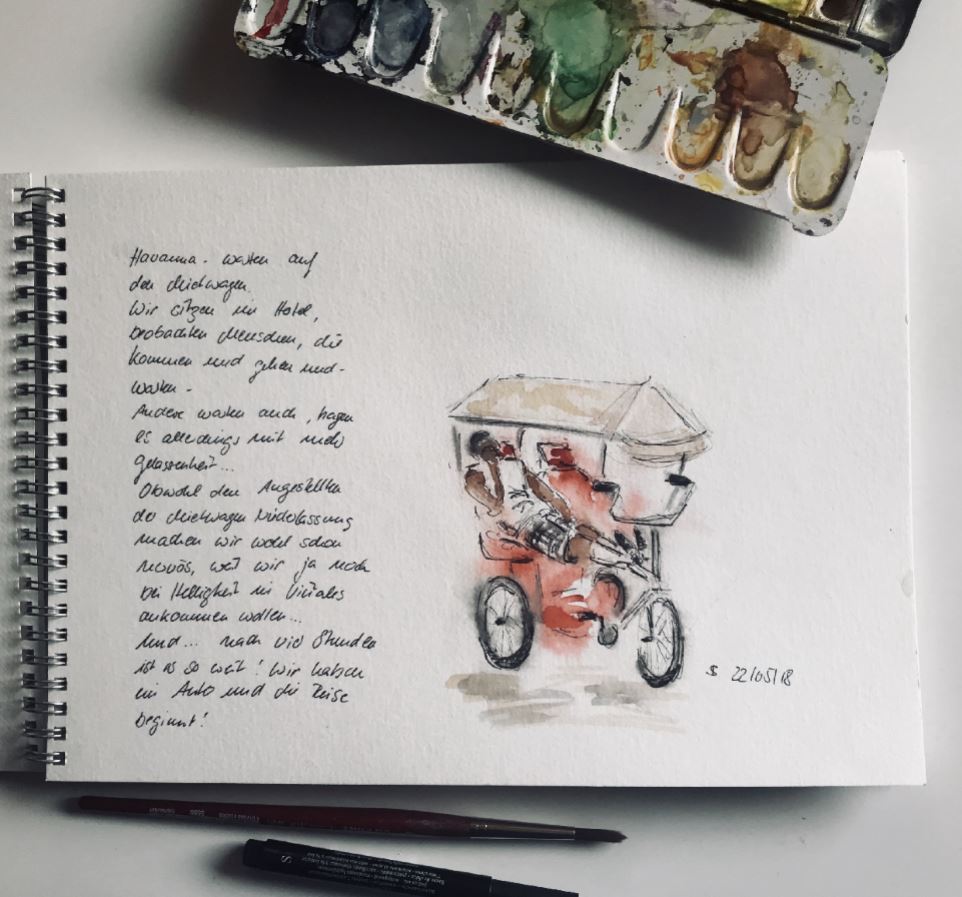 Havanna - warten auf
den Mietwagen.
Wir sitzen im Hotel,
beobachten Menschen, die
kommen und gehen und -
warten -
Andere warten auch, tragen
es allerdings mit mehr
Gelassenheit...
Obwohl den Angestellten
der Mietwagen Niederlassung
machen wir wohl schon
nervös, weil wir ja noch
bei Helligkeit in Viñales
ankommen wollen...
Und... nach vier Stunden
ist es so weit! Wir haben
ein Auto und die Reise
beginnt!
S 22/05/18